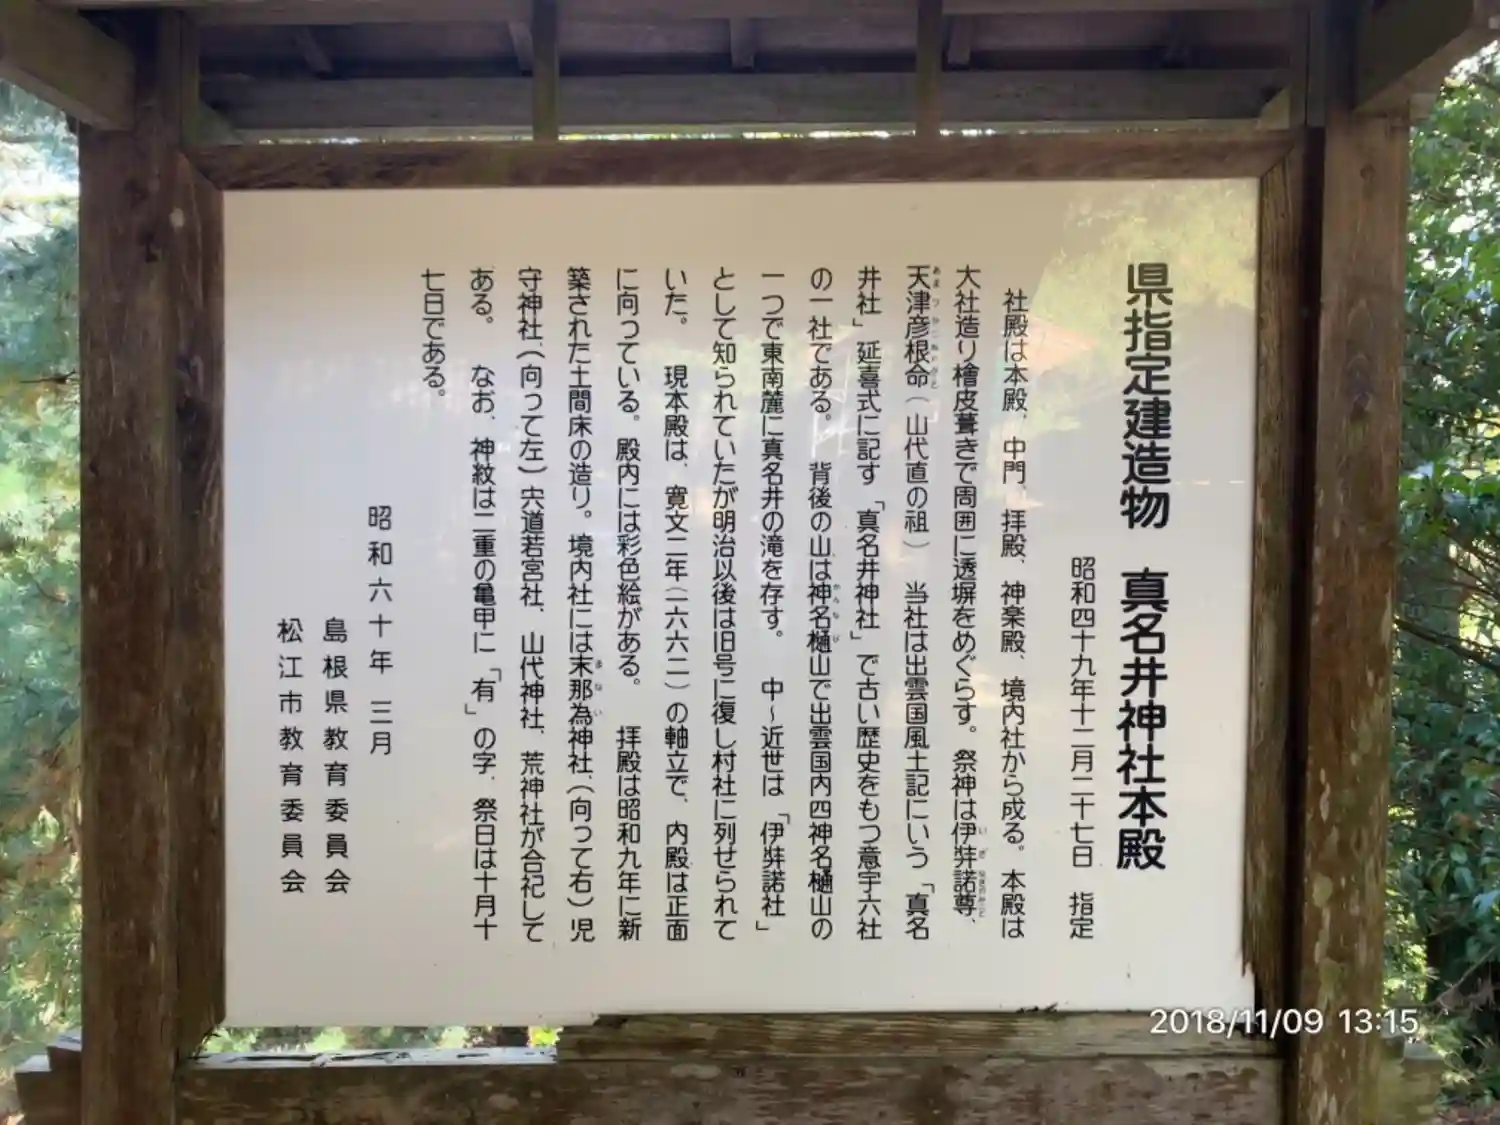 県指定建造物　真名井神社本殿
昭和四十九年十二月二十七日　指定
社殿は本殿、中門、拝殿、神楽殿、境内社から成る。本殿は
大社造り檜皮葺きで周囲に透塀をめぐらす。祭神は伊弉諾尊、
天津彦根命（山代直の祖）　当社は出雲国風土記にいう「真名
井社」延喜式に記す「真名井神社」で古い歴史をもつ意宇六社
の一社である。　背後の山は神名樋山で出雲国内四神名樋山の
一つで東南麓に真名井の滝を存す。　中～近世は「伊弉諾社」
として知られていたが明治以後は旧号に復し村社に列せられて
いた。　現本殿は、寛文二年（一六六二）の軸立で、内殿は正面
に向っている。殿内には彩色絵がある。　拝殿は昭和九年に新
築された土間床の造り。境内社には末那為神社、（向って右）児
守神社（向って左）宍道若宮社、山代神社、荒神社が合祀して
ある。　なお、神紋は二重の亀甲に「有」の字、祭日は十月十
七日である。
昭和六十年三月
島根県教育委員会
松江市教育委員会
2018/11/09 13:15